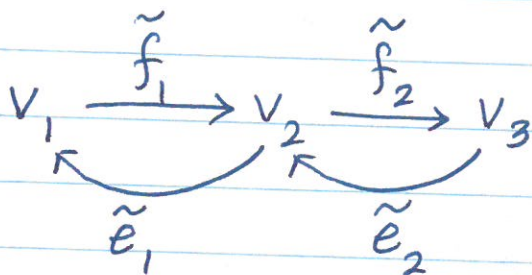 f̃₁ f̃₂
v₁ v₂ v₃
ẽ₁ ẽ₂